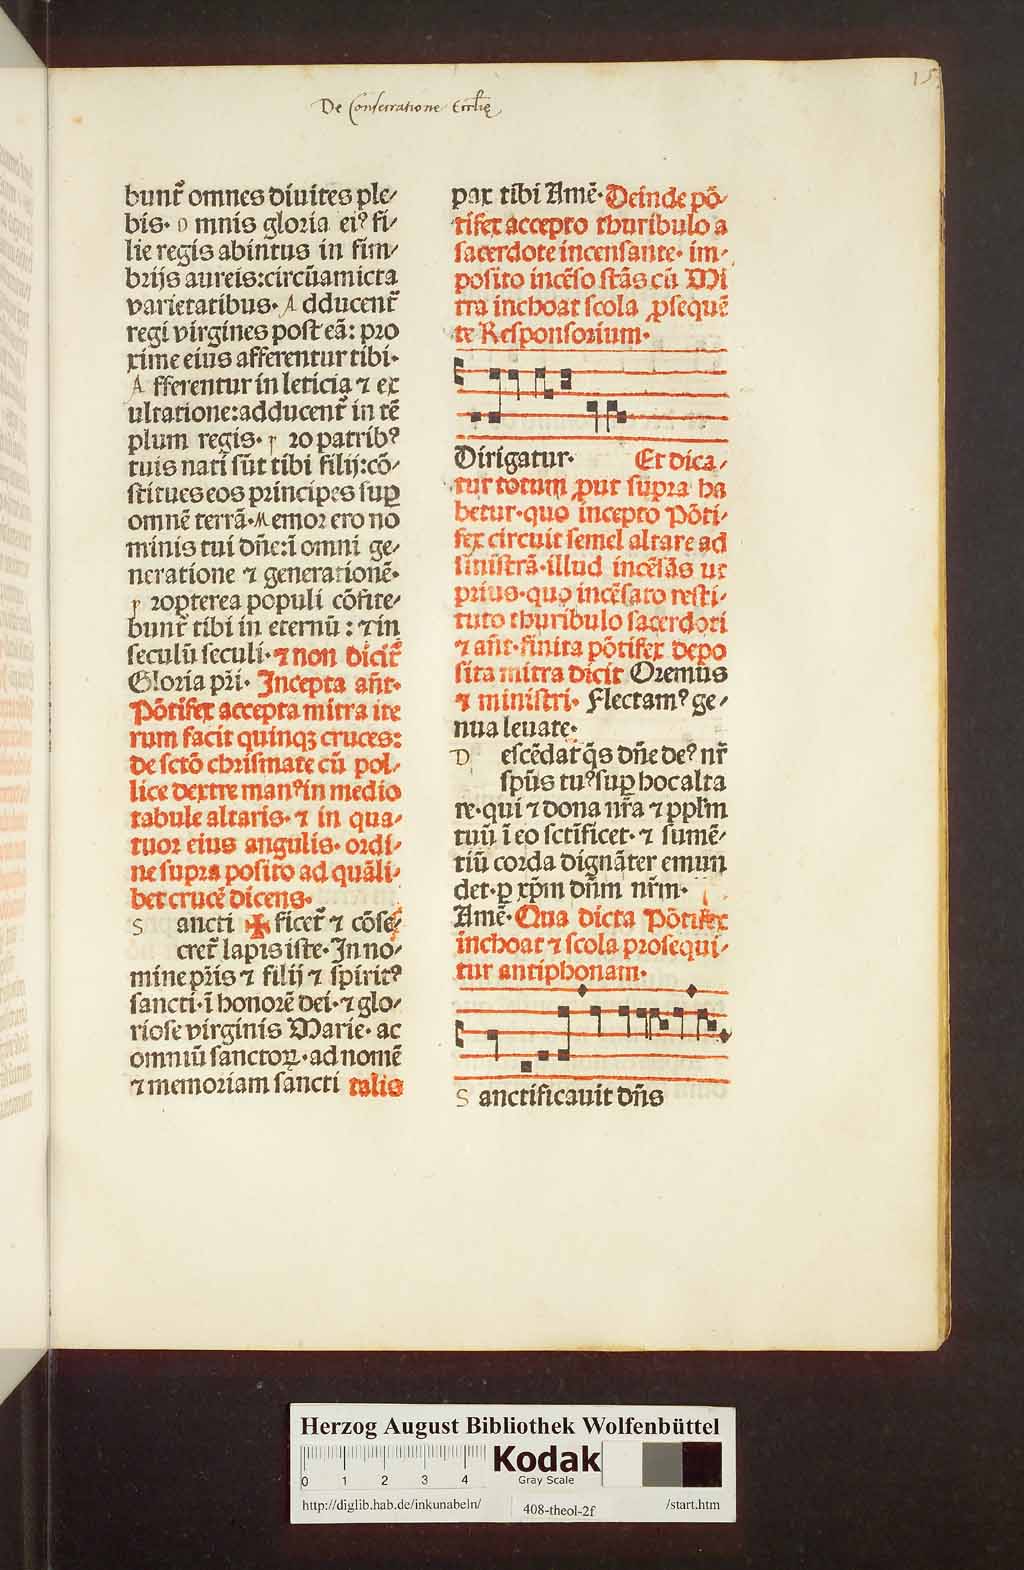 De Consecratione Eccl̄ię
15
bunt᷑ omnes diuites ple⸗
bis. o mnis gloria eiꝰ fi⸗
lie regis abintus in fim⸗
brijs aureis: circūamicta
varietatibus. A dducent᷑
regi virgines post eā: pro
xime eius afferentur tibi.
A fferentur in leticia ⁊ ex
ultatione: adducent᷑ in tē
plum regis. p ro patribꝰ
tuis nati sūt tibi filij: cō⸗
stitues eos principes suꝑ
omnē terrā. M emor ero no
minis tui dn̄e: ī omni ge⸗
neratione ⁊ generationē.
p ropterea populi cōfite⸗
bunt᷑ tibi in eternū: ⁊ in
seculū seculi. ⁊ non dicit᷑
Gloria pr̄i. Incepta an̄t.
Pōtifex accepta mitra ite
rum facit quinqꝫ cruces:
de sctō chrismate cū pol⸗
lice dextre manꝰ in medio
tabule altaris. ⁊ in qua⸗
tuor eius angulis. ordi⸗
ne supra posito ad quāli⸗
bet crucē dicens.
S ancti ✠ ficet᷑ ⁊ cōse⸗
cret᷑ lapis iste. In no⸗
mine pr̄is ⁊ filij ⁊ spiritꝰ
sancti. ī honorē dei. ⁊ glo⸗
riose virginis Marie. ac
omniū sanctoꝝ. ad nomē
⁊ memoriam sancti talis
pax tibi Amē. Deinde pō⸗
tifex accepto thuribulo a
sacerdote incensante. im⸗
posito incēso stās cū Mi
tra inchoat scola ꝓsequē
te Responsorium.
Dirigatur. Et dica⸗
tur totum ꝓut supra ha
betur. quo incepto Pōti⸗
fex circuit semel altare ad
sinistrā. illud incēsās ut
prius. quo incēsato resti⸗
tuto thuribulo sacerdoti
⁊ an̄t. finita pōtifex depo
sita mitra dicit Oremus
⁊ ministri. Flectamꝰ ge⸗
nua leuate.
D escēdat᷑ q̄s dn̄e deꝰ nr̄
sp̄us tuꝰ suꝑ hoc alta
re. qui ⁊ dona nr̄a ⁊ pplm̄
tuū ī eo sctīficet. ⁊ sumē⸗
tiū corda dignāter emun
det. ꝑ xp̄m dn̄m nr̄m.
Amē. Qua dicta Pōtifex
inchoat ⁊ scola prosequi⸗
tur antiphonam.
S anctificauit dn̄s
Herzog August Bibliothek Wolfenbüttel
0 1 2 3 4
Kodak
Gray Scale
http://diglib.hab.de/inkunabeln/ 408-theol-2f /start.htm